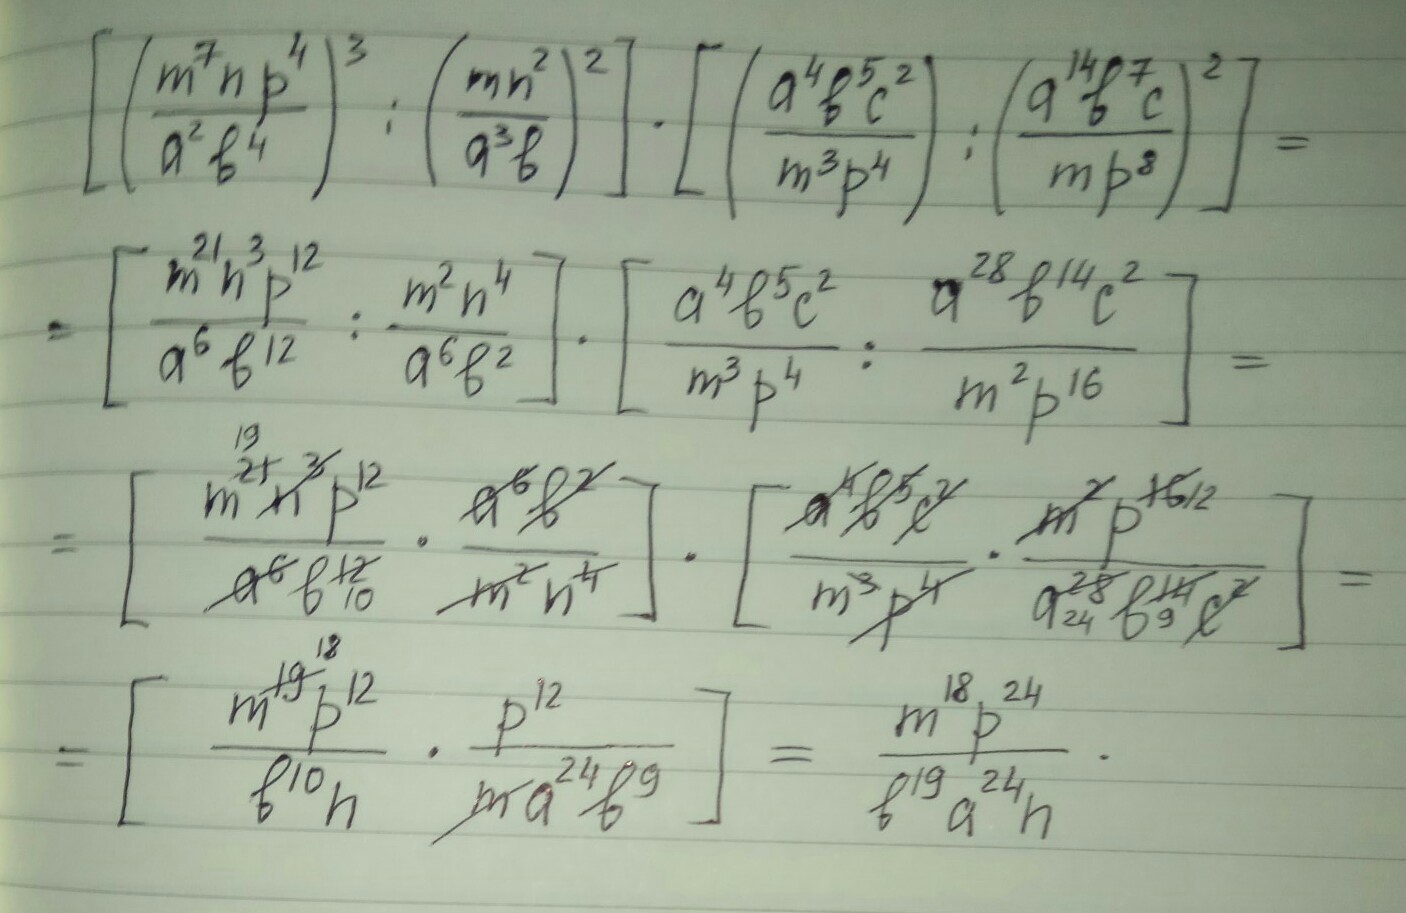 [(m⁷np⁴/a²b⁴)³ : (mn²/a³b)²] · [(a⁴b⁵c²/m³p⁴) : (a¹⁴b⁷c/mp⁸)²] =
= [m²¹n³p¹²/a⁶b¹² : m²n⁴/a⁶b²] · [a⁴b⁵c²/m³p⁴ : a²⁸b¹⁴c²/m²p¹⁶] =
19
= [m²¹n³p¹²/a⁶b¹² 10 · a⁶b²/m²n⁴] · [a⁴b⁵c²/m³p⁴ · m²p¹⁶ 12/a²⁸ 24 b¹⁴ 9 c²] =
18
= [m¹⁹p¹²/b¹⁰n · p¹²/ma²⁴b⁹] = m¹⁸p²⁴/b¹⁹a²⁴n .